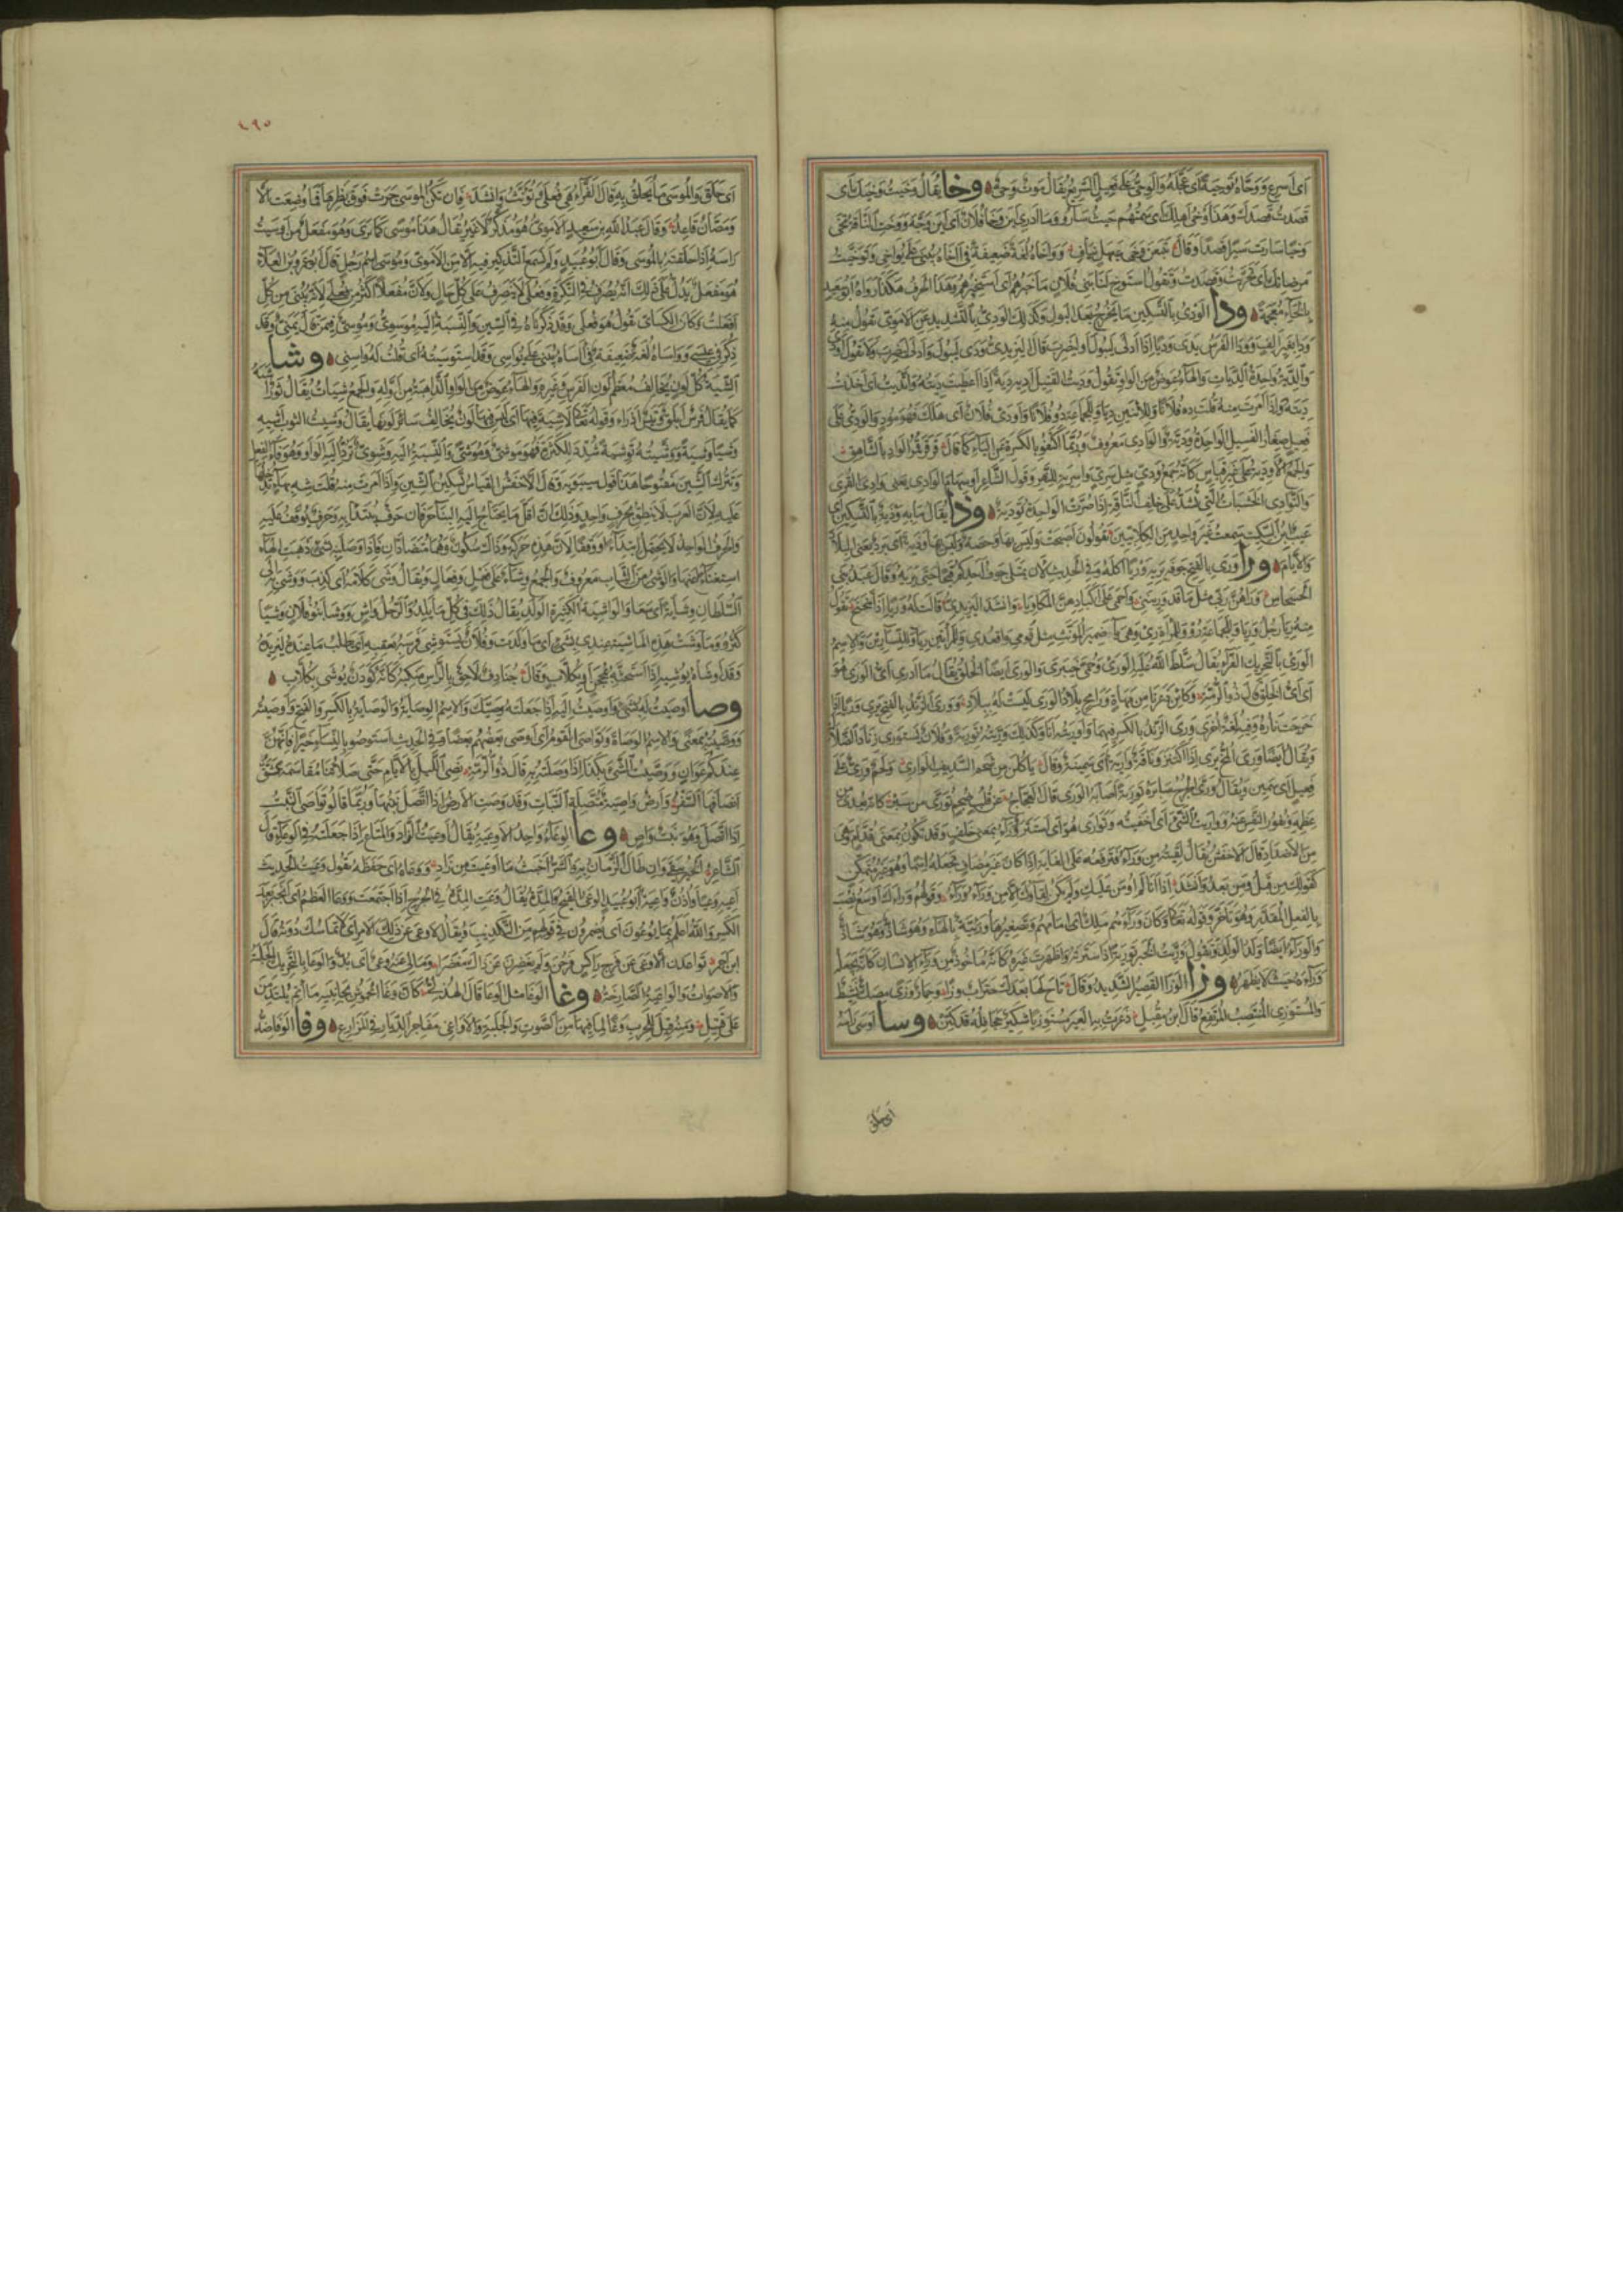 اى اسرع ووحاه توحية اى عجله والوحى على فعيل السريع يقال موت وحى وخا يقال وخيت وخيك اى
قصدت قصدك وهذا وخى اهلك اى سمتهم حيث ساروا وما ادرى اين وخا فلان اى اين توجه ووخت الناقة تخى
وخيا سارت سيرا قصدا وقال وواخاه لغة ضعيفة فى اخاه يبنى على يواخى وتوخيت
مرضاتك اى تحريت وقصدت وتقول استوخ لنا بنى فلان ما خبرهم اى استخبرهم وهذا الحرف هكذا رواه ابو سعيد
بالخاء معجمة ودا الودى بالتسكين ما يخرج بعد البول وكذلك الودى بالتشديد عن الاموى تقول منه
ودا بغير الف وودا الفرس يدى وديا اذا ادلى ليبول او ليضرب قال اليزيدى ودى ليبول وادلى ليضرب ولا تقول اودى
والدية واحدة الديات والهاء عوض من الواو تقول وديت القتيل اديه دية اذا اعطيت ديته واتديت اى اخذت
ديته واذا امرت منه قلت ده فلانا وللاثنين ديا وللجماعة دوا فلانا واودى فلان اى هلك فهو مود والودى على
فعيل صغار الفسيل الواحدة ودية والوادى معروف وربما اكتفوا بالكسرة عن الياء كما قال قرقر قمر الواد بالشاهق
والجمع الاودية على غير قياس كانه جمع ودى مثل سرى واسرية للنهر وقول الشاعر الوادى يعنى وادى القرى
والتوادى الخشبات التى تشد على خلف الناقة اذا صرت الواحدة تودية وذا يقال ما به وذية بالتسكين اى
عيب ابن السكيت سمعت غير واحد من الكلابيين يقولون اصبحت وليس بها وحصة وليس بها وذية اى برد يعنى البلاد
والايام ورا ورى بالفتح جوفه يريه وريا اكله وفى الحديث لان يمتلى جوف احدكم قيحا حتى يريه وقال عبد بنى
الحسحاس وراهن ربى مثل ما قد ورينى واحمى على اكبادهن المكاويا وانشد اليزيدى قالت له وريا اذا تنحنح تقول
منه ر يا رجل وريا وللجماعة روا وللمرأة رى وهى ياء ضمير المؤنث مثل قومى واقعدى وللمراتين ريا وللنساء رين والاسم
الورى بالتحريك الفراء يقال سلط الله عليه الورى وحمى خيبرى والورى ايضا الخلق يقال ما ادرى اى الورى هو
اى اى الخلق قال ذو الرمة وكائن ذعرنا من مهاة ورامح بلاد الورى ليست له ببلاد وورى الزند بالفتح يرى وريا اذا
خرجت ناره وفيه لغة اخرى ورى الزند يرى بالكسر فيهما واوريته انا وكذلك وريته تورية وفلان يستورى زناد الضلالة
ويقال ايضا ورى المخ يرى اذا اكتنز وناقة وارية اى سمينة وقال ياكلن من لحم السديف الوارى ولحم ورى على
فعيل اى سمين ويقال ورى الجرح سابره تورية اصابه الورى قال العجاج عن قلب ضجم تورى من سبر كانه يعدى من
عظمه ونفور النفس عنه وواريت الشئ اى اخفيته وتوارى هو اى استتر ووراء بمعنى خلف وقد تكون بمعنى قدام وهى
من الاضداد قال الاخفش يقال لقيته من وراء فترفعه على الغاية اذا كان غير مضاف تجعله اسما وهو غير متمكن
كقولك من قبل ومن بعد وانشد اذا انا لم اومن عليك ولم يكن لقاؤك الا من وراء وراء وقولهم وراءك اوسع نصب
بالفعل المقدر وهو تاخر وقوله تعالى وكان وراءهم ملك اى امامهم وتصغيرها وريئة بالهاء وهو شاذ
والوراء ايضا ولد الولد وتقول وريت الخبر تورية اذا سترته واظهرت غيره كانه ماخوذ من وراء الانسان كانه يجعله
وراءه حيث لا يظهر وزا الوزا القصير الشديد وقال تاح لها بعدك حنزاب وزا وحمار وزى مصك نشيط
والمستوزى المنتصب المرتفع قال ابن مقبل ذعرت به العير مستوزيا شكير جحافله قد كتن وسا اوسى راسه
اى حلق
١٩٥
اى حلق والموسى ما يحلق به قال الفراء هى فعلى وتؤنث وانشد فان تكن الموسى جرت فوق بظرها فما وضعت الا
ومصان قاعد وقال عبد الله بن سعيد الاموى هو مذكر لا غير يقال هذا موسى كما ترى وهو مفعل من اوسيت
راسه اذا حلقته بالموسى وقال ابو عبيد ولم نسمع التذكير فيه الا من الاموى وموسى اسم رجل قال ابو عمرو بن العلاء
هو مفعل يدل على ذلك انه يصرف فى النكرة وفعلى لا ينصرف على كل حال ولان مفعلا اكثر من فعلى لانه يبنى من كل
افعلت وكان الكسائى يقول هو فعلى وقد ذكرناه فى السين والنسبة اليه موسوى وموسى فيمن قال يمنى وقد
ذكر فى عيسى وواساه لغة ضعيفة فى آساه يبنى على يواسى وقد استوسيته اى قلت له واسنى وشا
الشية كل لون يخالف معظم لون الفرس وغيره والهاء عوض من الواو الذاهبة من اوله والجمع شيات يقال ثور اشيه
كما يقال فرس ابلق وتيس اذرا وقوله تعالى لا شية فيها اى ليس فيها لون يخالف سائر لونها يقال وشيت الثوب اشيه
وشيا وشية ووشيته توشية شدد للكثرة فهو موشى وموشى والنسبة اليه وشوى ترد اليه الواو وهو فاء الفعل
وتترك الشين مفتوحا هذا قول سيبويه وقال الاخفش القياس تسكين الشين واذا امرت منه قلت شه بهاء تدخلها
عليه لان العرب لا تنطق بحرف واحد وذلك ان اقل ما يحتاج اليه البناء حرفان حرف يبتدا به وحرف يوقف عليه
والحرف الواحد لا يحتمل ابتداء ووقفا لان هذه حركة وذاك سكون وهما متضادان فاذا وصلت بشئ ذهبت الهاء
استغناء عنها والوشى من الثياب معروف والجمع وشاء على فعل وفعال ويقال وشى كلامه اى كذب ووشى به الى
السلطان وشاية اى سعا والواشية الكثيرة الولد يقال ذلك فى كل ما يلد والرجل واش ووشا بنو فلان وشيا
كثروا وما وشت هذه الماشية عندى بشئ اى ما ولدت وفلان يستوشى فرسه بعقبه اى يطلب ما عنده ليزيده
وقد اوشاه يوشيه اذا استحثه بمحجن او بكلاب وقال جنادف لاحق بالراس منكبه كانه كودن يوشى بكلاب
وصا اوصيت له بشئ واوصيت اليه اذا جعلته وصيك والاسم الوصاية والوصاية بالكسر والفتح واوصيته
ووصيته بمعنى والاسم الوصاة وتواصى القوم اى اوصى بعضهم بعضا وفى الحديث استوصوا بالنساء خيرا فانهن
عندكم عوان ووصيت الشئ بكذا اذا وصلته به قال ذو الرمة نصى الليل بالايام حتى صلاتنا مقاسمة يشتق
انصافها السفر وارض واصية متصلة النبات وقد وصت الارض اذا اتصل نبتها وربما قالوا تواصى النبت
اذا اتصل وهو نبت واص وعا الوعاء واحد الاوعية يقال اوعيت الزاد والمتاع اذا جعلته فى الوعاء قال
الشاعر الخير يبقى وان طال الزمان به والشر اخبث ما اوعيت من زاد ووعاه اى حفظه تقول وعيت الحديث
اعيه وعيا واذن واعية ابو عبيد الوعى القيح والمدة يقال وعت المدة فى الجرح اذا اجتمعت ووعا العظم اى انجبر بعد
الكسر والله اعلم بما يوعون اى يضمرون فى قلوبهم من التكذيب ويقال لا وعى عن ذلك الامر اى لا تماسك دونه قال
ابن احمر تواعدن ان لا وعى عن فرج راكس فرحن ولم يغضرن عن ذاك مغضرا وما لى عنه وعى اى بد والوعا بالتحريك الجلبة
والاصوات والواعية الصارخة وغا الوغا مثل الوعا قال الهذلى كان وغا الخموش بجانبيه ماتم يلتدمن
على قتيل ومنه قيل للحرب وغا لما فيها من الصوت والجلبة والاواغى مفاجر الديار فى المزارع وفا الوفا ضد